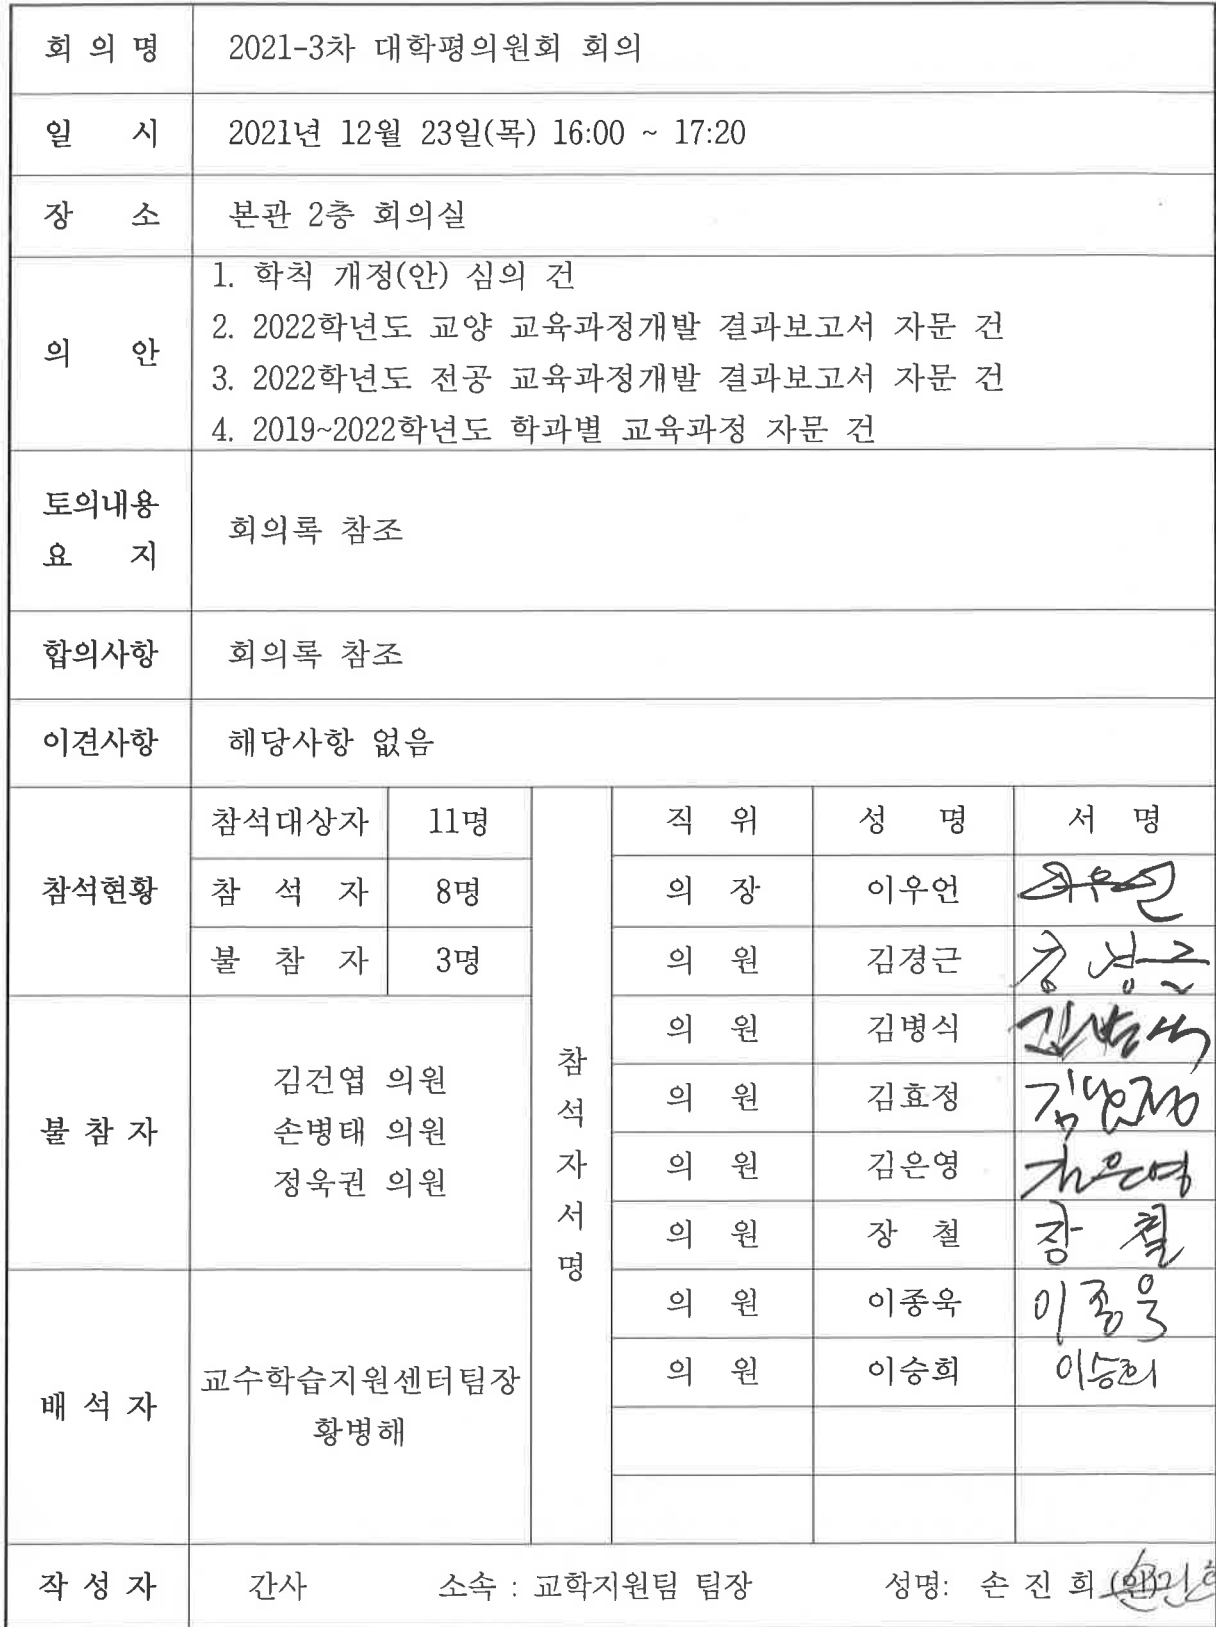 회 의 명 2021-3차 대학평의원회 회의
일 시 2021년 12월 23일(목) 16:00 ~ 17:20
장 소 본관 2층 회의실
의 안
1. 학칙 개정(안) 심의 건
2. 2022학년도 교양 교육과정개발 결과보고서 자문 건
3. 2022학년도 전공 교육과정개발 결과보고서 자문 건
4. 2019~2022학년도 학과별 교육과정 자문 건
토의내용
요 지
회의록 참조
합의사항 회의록 참조
이견사항 해당사항 없음
참석현황
참석대상자 11명
참 석 자 8명
불 참 자 3명
불 참 자
김건엽 의원
손병태 의원
정욱권 의원
배 석 자
교수학습지원센터팀장
황병해
참
석
자
서
명
직 위 성 명 서 명
의 장 이우언
의 원 김경근
의 원 김병식
의 원 김효정
의 원 김은영 김은영
의 원 장 철 장 철
의 원 이종욱 이종욱
의 원 이승희 이승희
작 성 자 간사 소속 : 교학지원팀 팀장 성명: 손 진 희 (인)